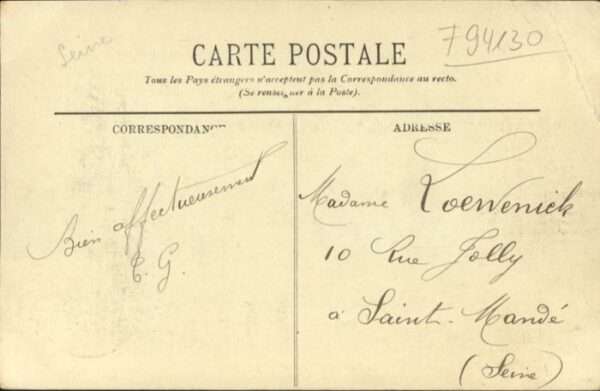 Seine
794130
CARTE POSTALE
Tous les Pays étrangers n'acceptent pas la Correspondance au recto.
(Se renseigner à la Poste).
CORRESPONDANCE
ADRESSE
Bien affectueusement
E. G.
Madame Loewenick
10 Rue Jolly
à Saint-Mandé
(Seine)